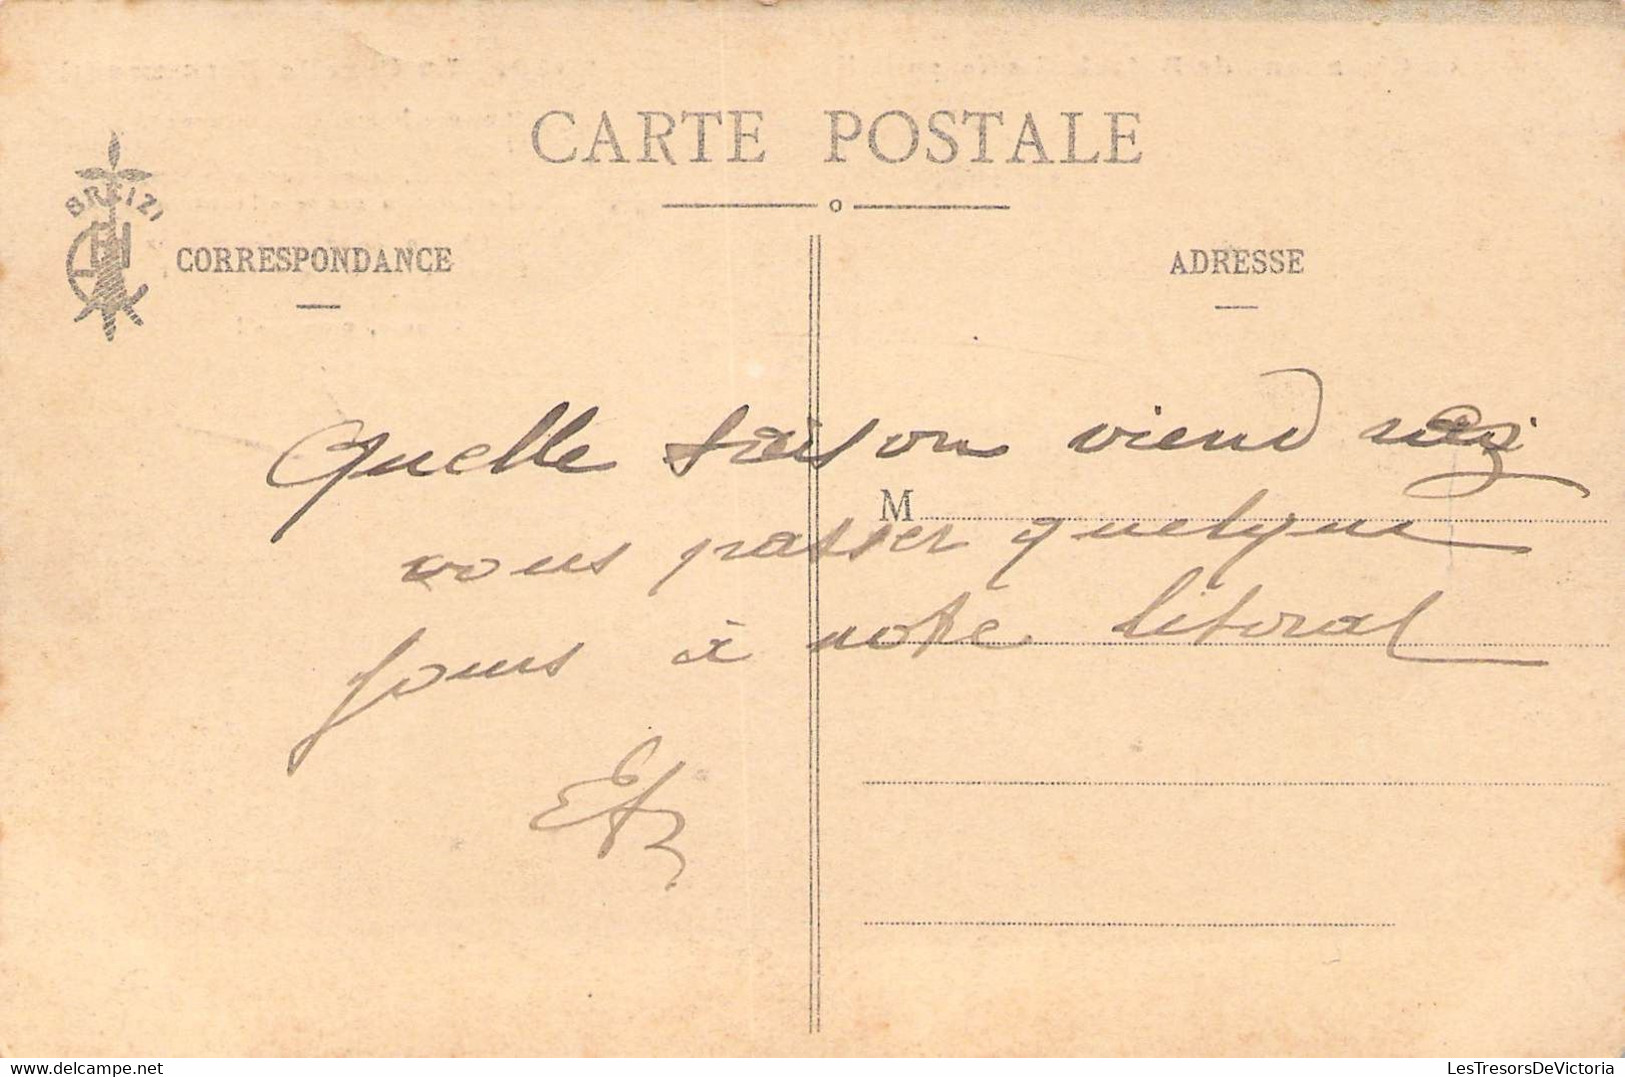 CARTE POSTALE
BREIZ
CORRESPONDANCE
ADRESSE
Quelle saison viend
M
vous passer quelque
jours à notre litoral
LesTresorsDeVictoria